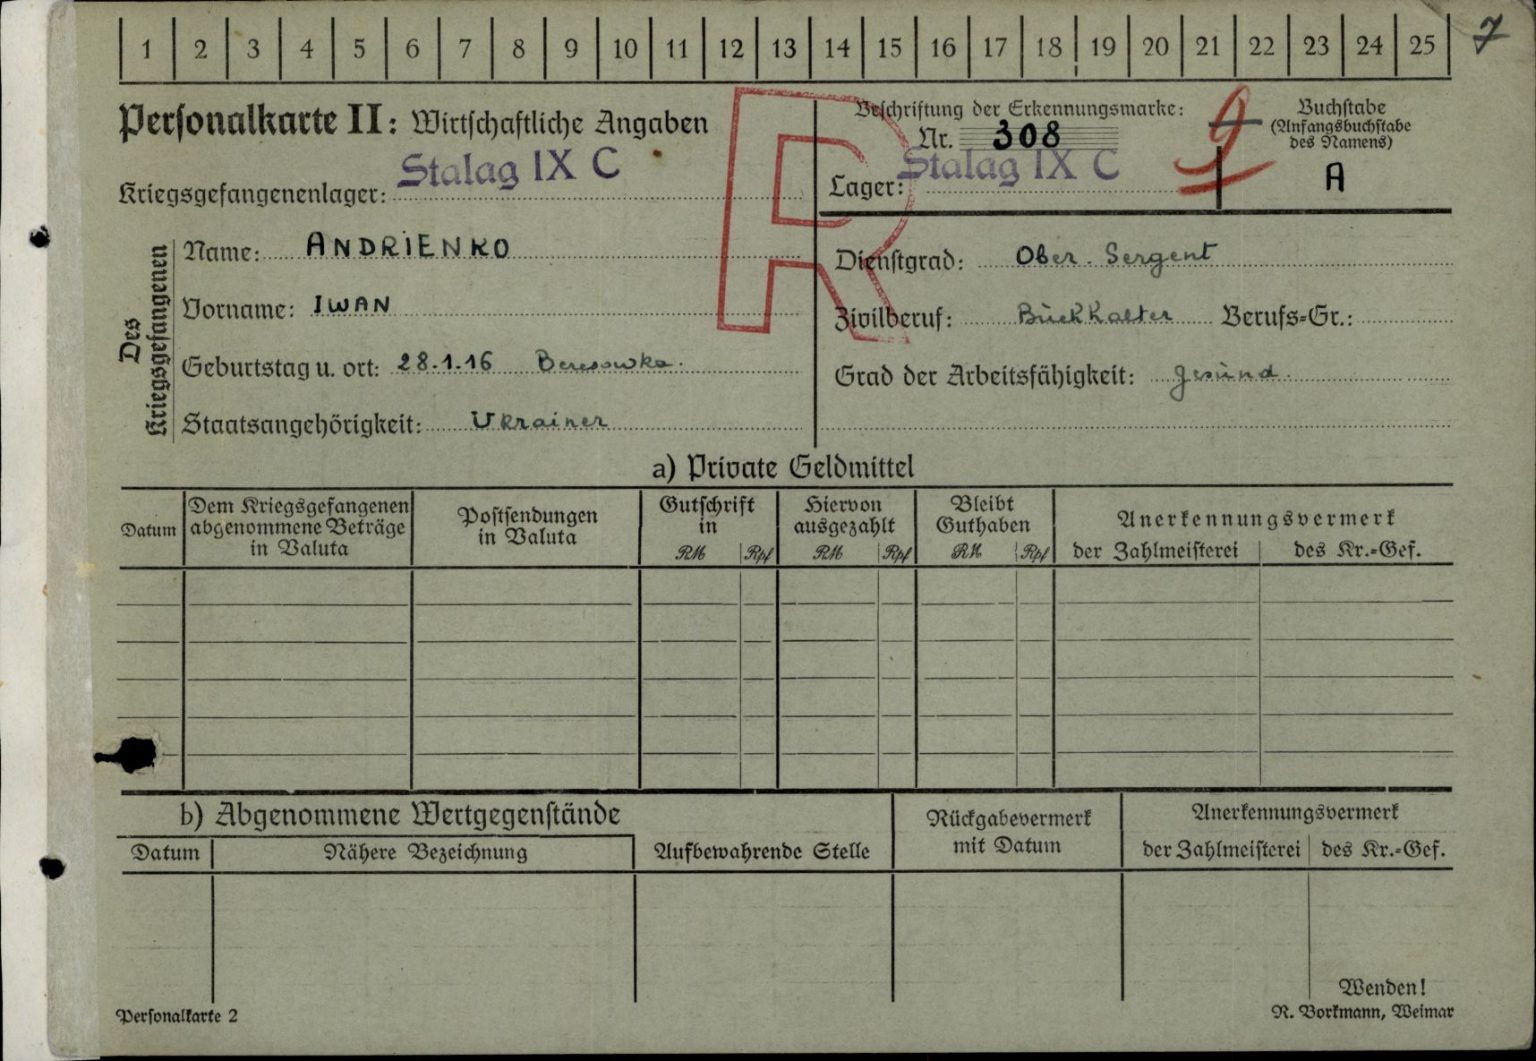 1 2 3 4 5 6 7 8 9 10 11 12 13 14 15 16 17 18 19 20 21 22 23 24 25
7
Personalkarte II: Wirtschaftliche Angaben
Stalag IX C
Kriegsgefangenenlager:
R
Beschriftung der Erkennungsmarke:
Nr. 308
Stalag IX C
Lager:
Buchstabe
(Anfangsbuchstabe
des Namens)
A
Des
Kriegsgefangenen
Name: ANDRIENKO
Vorname: IWAN
Geburtstag u. ort: 28.1.16 Beresowka.
Staatsangehörigkeit: Ukrainer
Dienstgrad: Ober. Sergent
Zivilberuf: Buckhalter Berufs=Gr.:
Grad der Arbeitsfähigkeit: gesund.
a) Private Geldmittel
Datum
Dem Kriegsgefangenen
abgenommene Beträge
in Valuta
Postsendungen
in Valuta
Gutschrift
in
RM Rpf
Hiervon
ausgezahlt
RM Rpf
Bleibt
Guthaben
RM Rpf
Anerkennungsvermerk
der Zahlmeisterei des Kr.=Gef.
b) Abgenommene Wertgegenstände
Datum Nähere Bezeichnung Aufbewahrende Stelle
Rückgabevermerk
mit Datum
Anerkennungsvermerk
der Zahlmeisterei des Kr.=Gef.
Wenden!
Personalkarte 2
R. Borkmann, Weimar